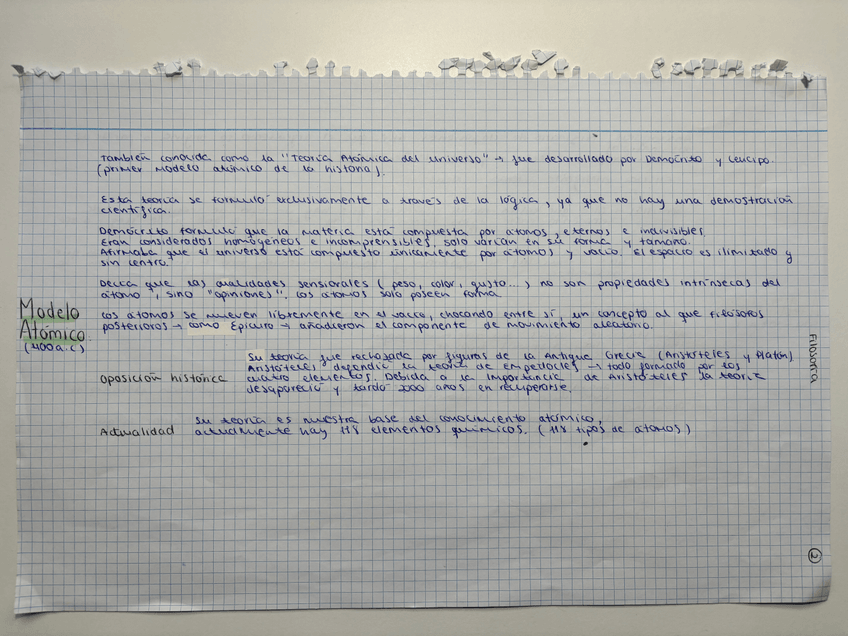 También conocida como la "Teoría Atómica del universo" → fue desarrollado por Demócrito y Leucipo.
(primer modelo atómico de la historia).
Esta teoría se formuló exclusivamente a través de la lógica, ya que no hay una demostración
científica.
Demócrito formuló que la materia está compuesta por átomos, eternos e indivisibles.
Eran considerados homogéneos e incomprensibles, solo varían en su forma y tamaño.
Afirmaba que el universo está compuesto únicamente por átomos y vacío. El espacio es ilimitado y
sin centro.
Decía que las cualidades sensoriales (peso, color, gusto...) no son propiedades intrínsecas del
átomo, sino "opiniones". Los átomos solo poseen forma.
Los átomos se mueven libremente en el vacío, chocando entre sí, un concepto al que filósofos
posteriores → como Epicuro → añadieron el componente de movimiento aleatorio.
Modelo
Atómico
(400 a.c)
Oposición histórica
Su teoría fue rechazada por figuras de la Antigua Grecia (Aristóteles y Platón)
Aristóteles defendía la teoría de Empedocles → todo formado por los
cuatro elementos. Debida a la importancia de Aristóteles la teoría
desapareció y tardó 2000 años en recuperarse.
Actualidad
Su teoría es nuestra base del conocimiento atómico,
actualmente hay 118 elementos químicos. (118 tipos de átomos)
FILOSOFÍA
2